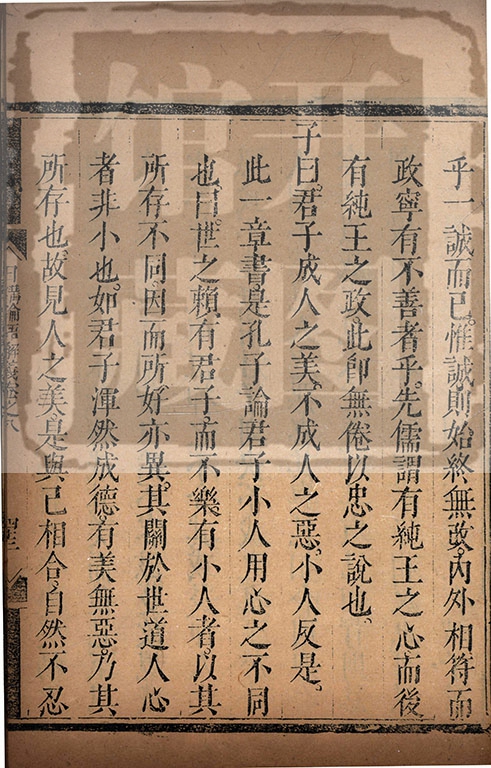 乎一誠而已惟誠則始終無改内外相符而
政寧有不善者乎先儒謂有純王之心而後
有純王之政此卽無倦以忠之說也
子曰君子成人之美不成人之惡小人反是
此一章書是孔子論君子小人用心之不同
也曰世之賴有君子而不樂有小人者以其
所存不同因而所好亦異其關於世道人心
者非小也如君子渾然成德有美無惡乃其
所存也故見人之美是與己相合自然不忍
日講